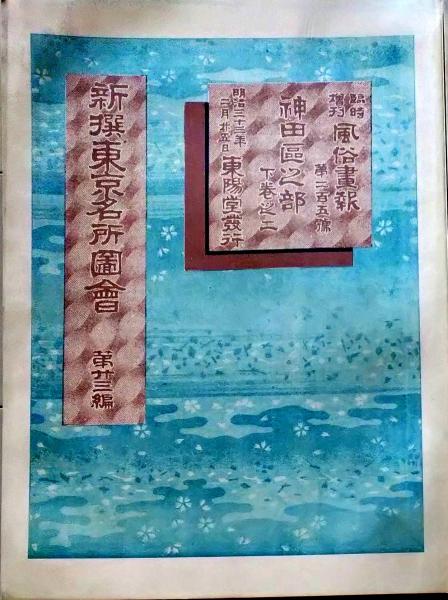 臨時
增刊
風俗畫報
第二百五號
神田區之部
下卷之二
明治三十三年
二月廿五日
東陽堂發行
新撰東京名所圖會
第廿三編